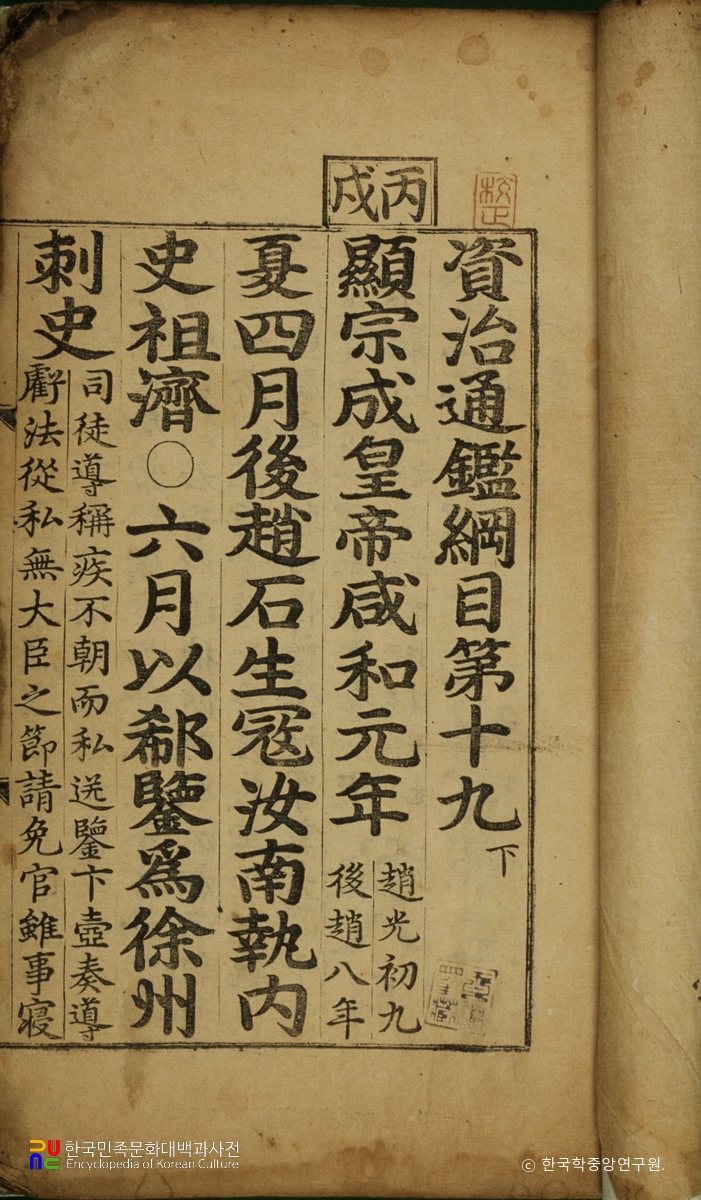 校正
丙戌
資治通鑑綱目第十九下
顯宗成皇帝咸和元年
趙光初九
後趙八年
夏四月後趙石生寇汝南執内
史祖濟○六月以郗鑒爲徐州
刺史
司徒導稱疾不朝而私送鑒卞壼奏導
虧法從私無大臣之節請免官雖事寢
한국민족문화대백과사전
Encyclopedia of Korean Culture
© 한국학중앙연구원.